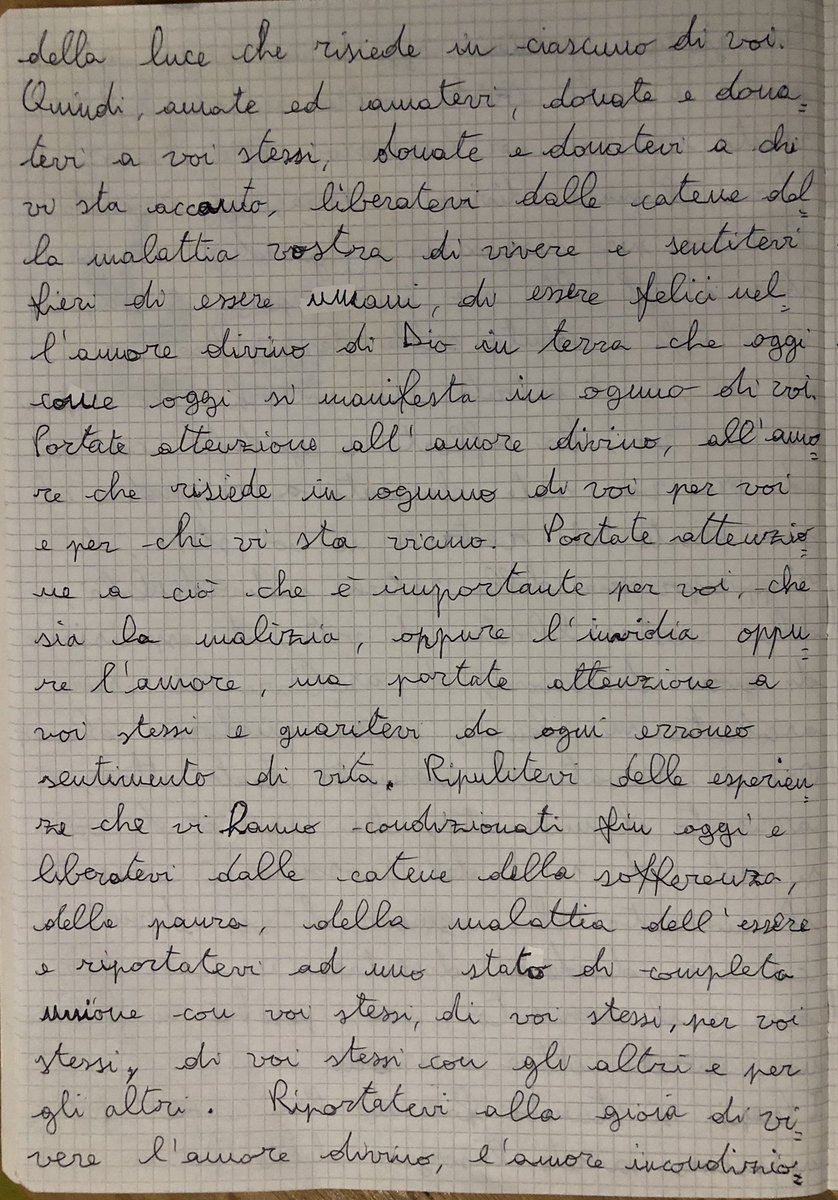 della luce che risiede in ciascuno di voi.
Quindi, amate ed amatevi, donate e dona=
tevi a voi stessi, donate e donatevi a chi
vi sta accanto, liberatevi dalle catene del=
la malattia vostra di vivere e sentitevi
fieri di essere umani, di essere felici nel=
l'amore divino di Dio in terra che oggi
come oggi si manifesta in ognuno di voi.
Portate attenzione all'amore divino, all'amo=
re che risiede in ognuno di voi per voi
e per chi vi sta vicino. Portate attenzio=
ne a ciò che è importante per voi, che
sia la malizia, oppure l'invidia oppu=
re l'amore, ma portate attenzione a
voi stessi e guaritevi da ogni erroneo
sentimento di vita. Ripulitevi delle esperien=
ze che vi hanno condizionati fin oggi e
liberatevi dalle catene della sofferenza,
della paura, della malattia dell'essere
e riportatevi ad uno stato di completa
unione con voi stessi, di voi stessi, per voi
stessi, di voi stessi con gli altri e per
gli altri. Riportatevi alla gioia di vi=
vere l'amore divino, l'amore incondizio=